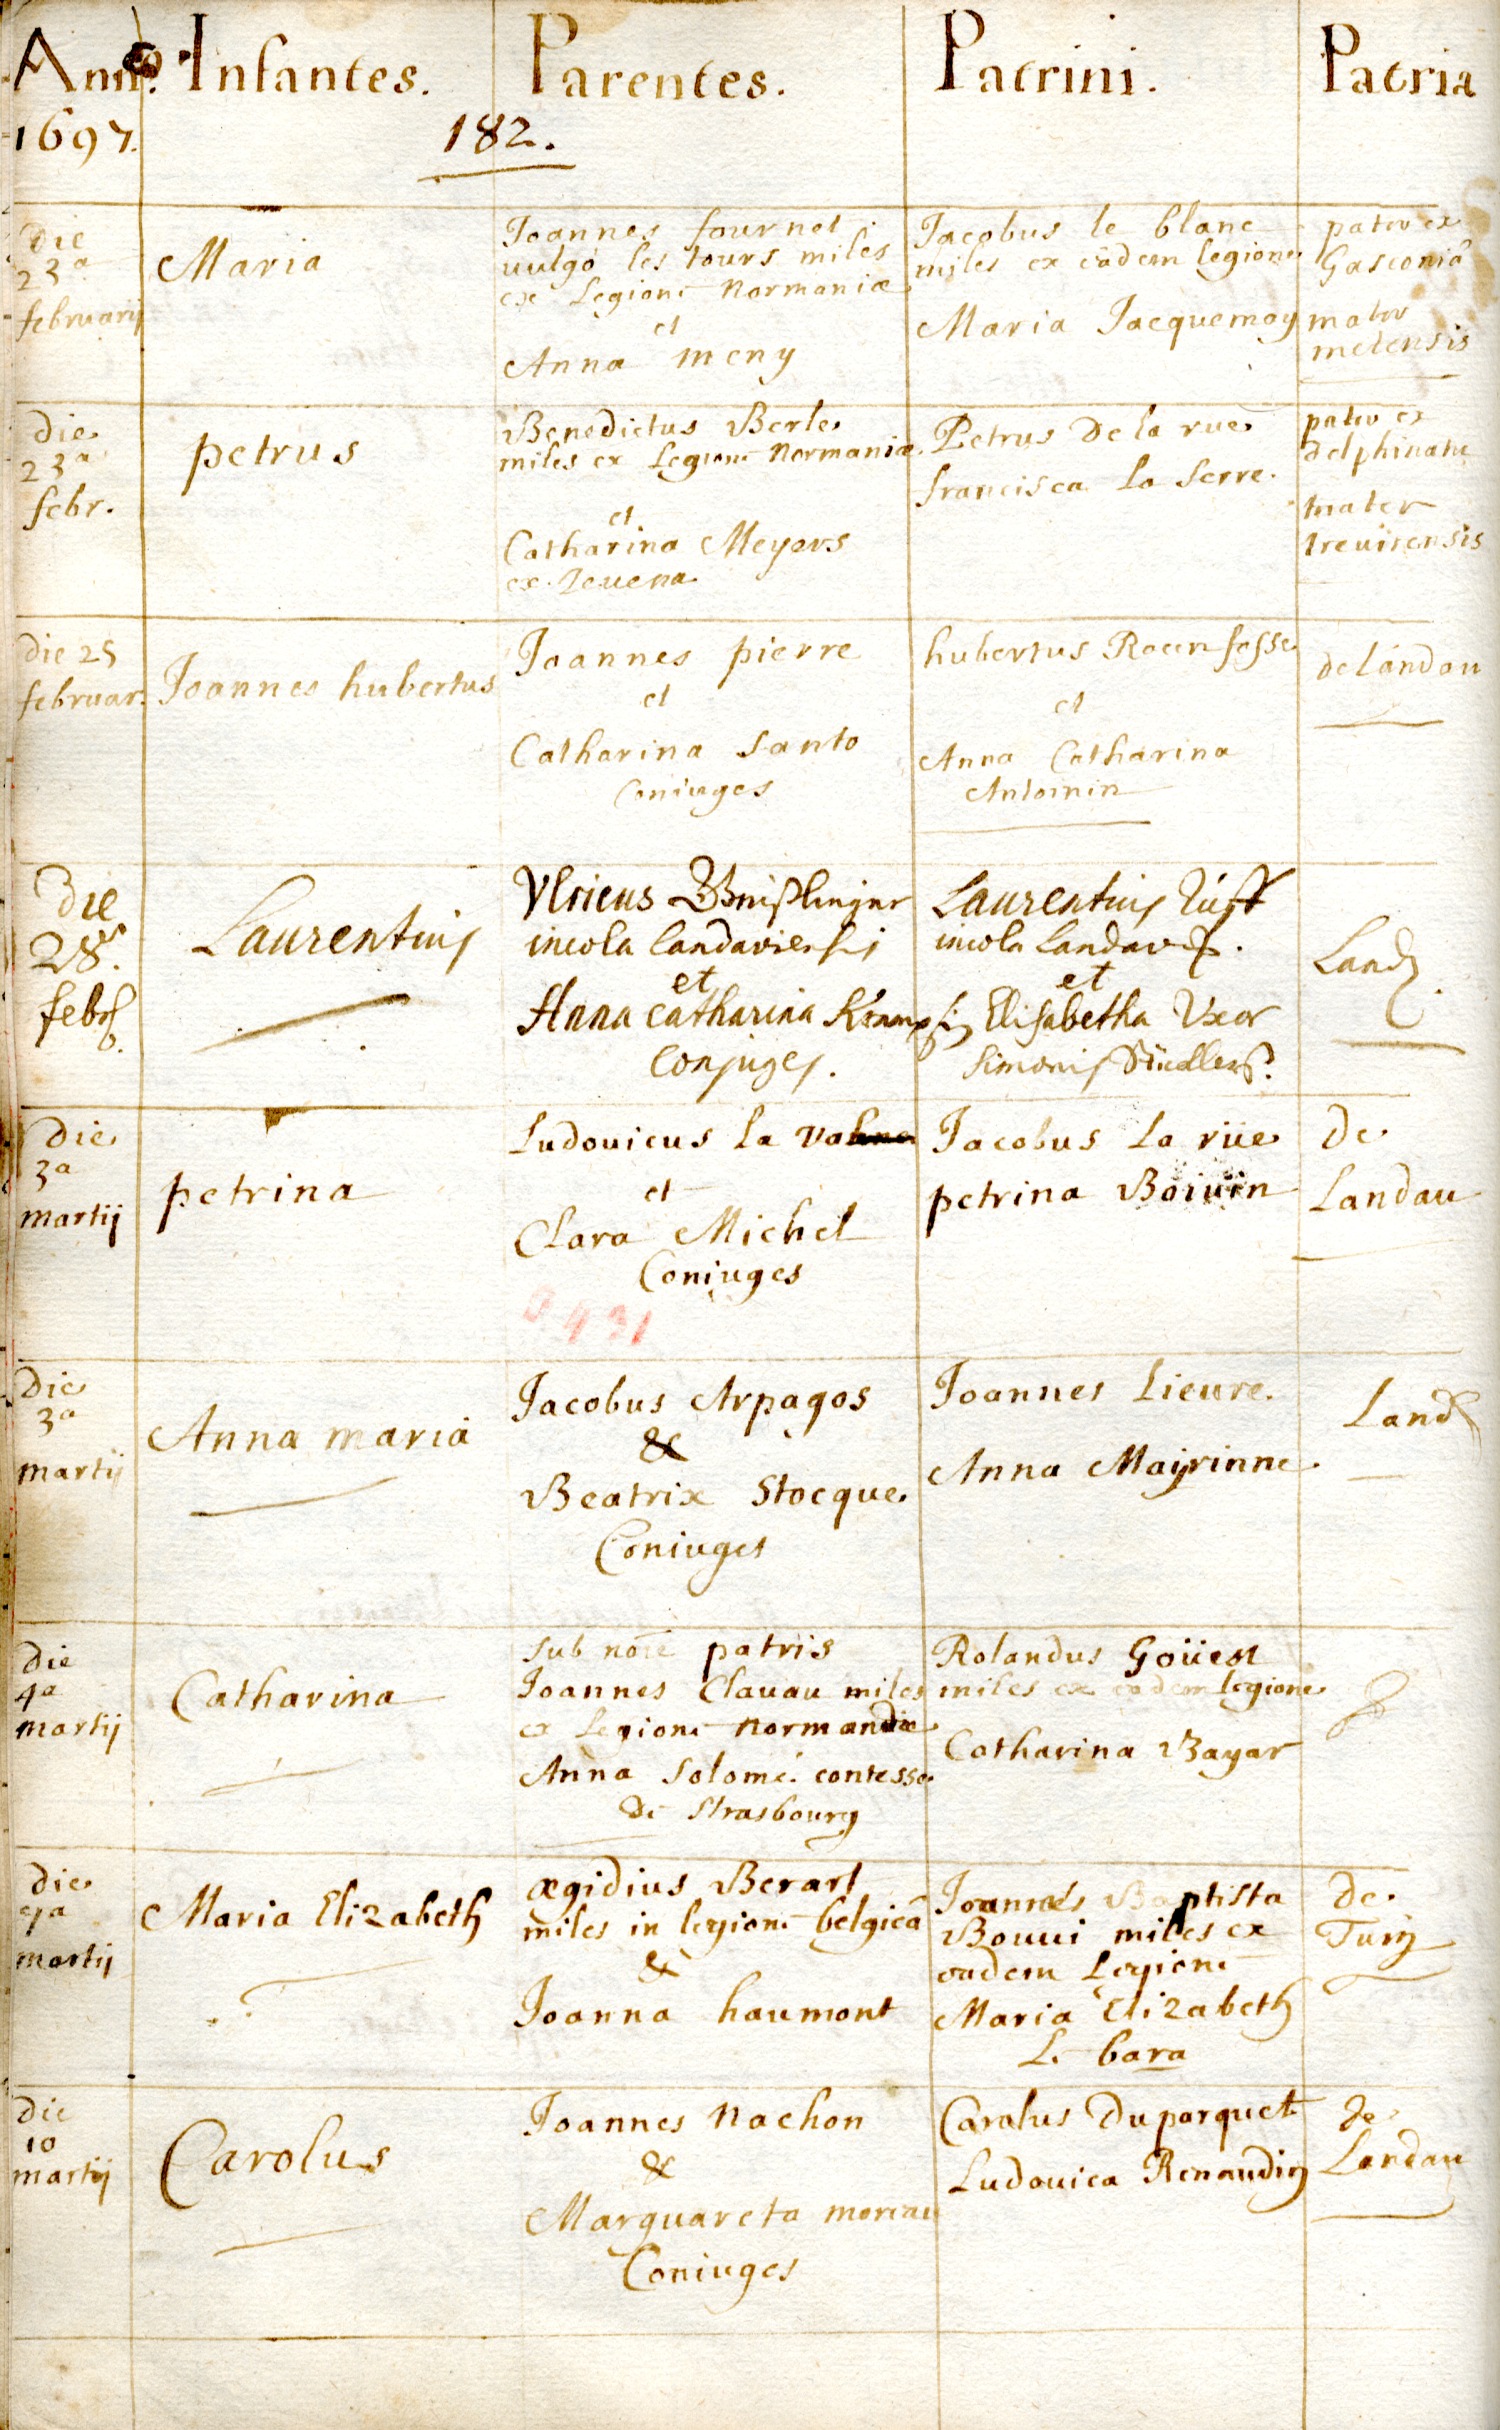 Anno. Infantes. Parentes. Patrini. Patria
1697.
182.
die
23ª
februarij
Maria
Joannes fournel
uulgo les tours miles
ex Legione Normaniæ
et
Anna meny
Jacobus le blanc
miles ex eâdem legione
Maria Jacquemoy
pater ex
Gasconiâ
mater
metensis
die
23ª
febr.
petrus
Benedictus Berle
miles ex Legione Normaniæ
et
Catharina Meyers
ex
Petrus De la rue
francisca la serre.
pater ex
delphinatu
mater
treuirensis
die 25
februar.
Joannes hubertus
Joannes pierre
et
Catharina Santo
Coniuges
hubertus
et
Anna Catharina
Antoinin
de landau
Die
28.
febr.
Laurentius
Ulricus
incola Landaviensis
et
Anna Catharina
Conjuges.
Laurentius
incola Landav.
et
Elisabetha Uxor
Simonis
Land.
die
3ª
martij
petrina
Ludouicus la
et
Clara Michel
Coniuges
9431
Jacobus la rüe
petrina Boiuin
de
Landau
die
3ª
martij
Anna maria
Jacobus Arpagos
&
Beatrix Stocque
Coniuges
Joannes Lieure.
Anna Mayrinne
Land
die
4ª
martij
Catharina
sub noie patris
Joannes Clauau miles
ex Legione Normandiæ
Anna Solomé contesse
De Strasbourg
Rolandus Goüest
miles ex eadem legione
Catharina Bayar
die
7ª
martij
Maria Elizabeth
ægidius Berart
miles in legione belgicâ
&
Joanna haumont
Joannes Baptista
Bouui miles ex
eadem Legione
Maria Elizabeth
Le bara
de
Turin
die
10
martij
Carolus
Joannes Nachon
&
Marguareta moreau
Coniuges
Carolus Du parquet
Ludouica Renaudin
de
Landau